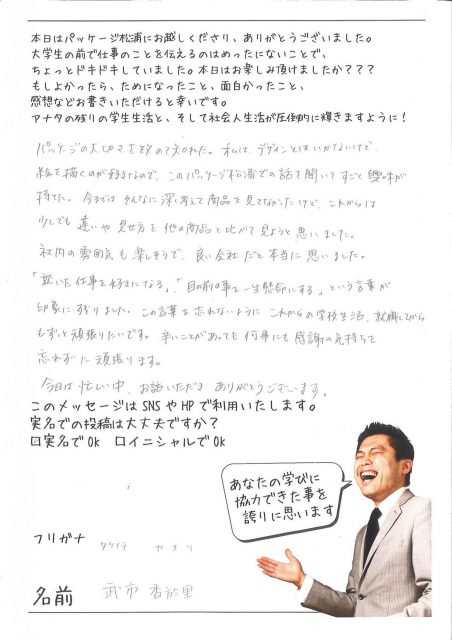 本日はパッケージ松浦にお越しくださり、ありがとうございました。
大学生の前で仕事のことを伝えるのはめったにないことで、
ちょっとドキドキしていました。本日はお楽しみ頂けましたか???
もしよかったら、ためになったこと、面白かったこと、
感想などお書きいただけると幸いです。
アナタの残りの学生生活と、そして社会人生活が圧倒的に輝きますように!
パッケージの大切さを改めて知れた。私は、デザインとはいかないけど、
絵を描くのが好きなので、このパッケージ松浦での話を聞いてすごく興味が
持てた。今まではそんなに深く考えて商品を見てなかたけど、これからは
少しでも違いや見せ方を他の商品と比べて見ようと思いました。
社内の雰囲気も楽しそうで、良い会社だと本当に思いました。
「就いた仕事を好きになる」、「目の前の事を一生懸命にする」という言葉が
印象に残りました。この言葉を忘れないようにこれからの学校生活、就職してから
もずっと頑張りたいです。辛いことがあっても何事にも感謝の気持ちを
忘れずに頑張ります。
今日は忙しい中、お話いただき ありがとうございます。
このメッセージはSNSやHPで利用いたします。
実名での投稿は大丈夫ですか?
□実名でOk □イニシャルでOk
あなたの学びに
協力できた事を
誇りに思います
フリガナ カオリ
名前 武市 香於里